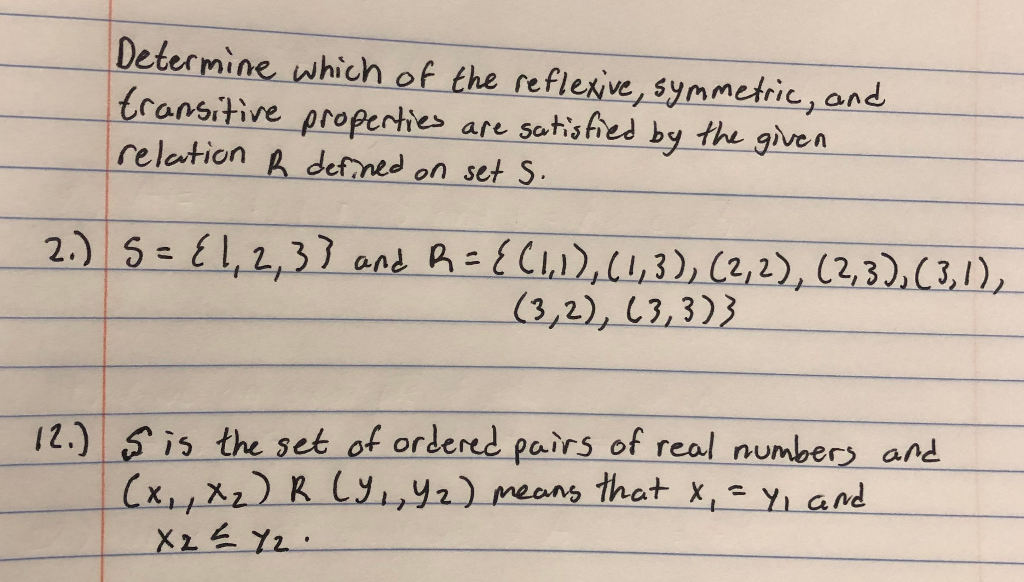 Determine which of the reflexive, symmetric, and
transitive properties are satisfied by the given
relation R defined on set S.
2.) S = {1, 2, 3} and R = {(1,1), (1,3), (2,2), (2,3), (3,1),
(3,2), (3,3)}
12.) S is the set of ordered pairs of real numbers and
(x₁, x₂) R (y₁, y₂) means that x₁ = y₁ and
x₂ ≤ y₂.